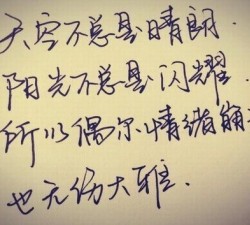 天空不总是晴朗.
阳光不总是闪耀.
所以偶尔情绪崩
也无伤大雅.